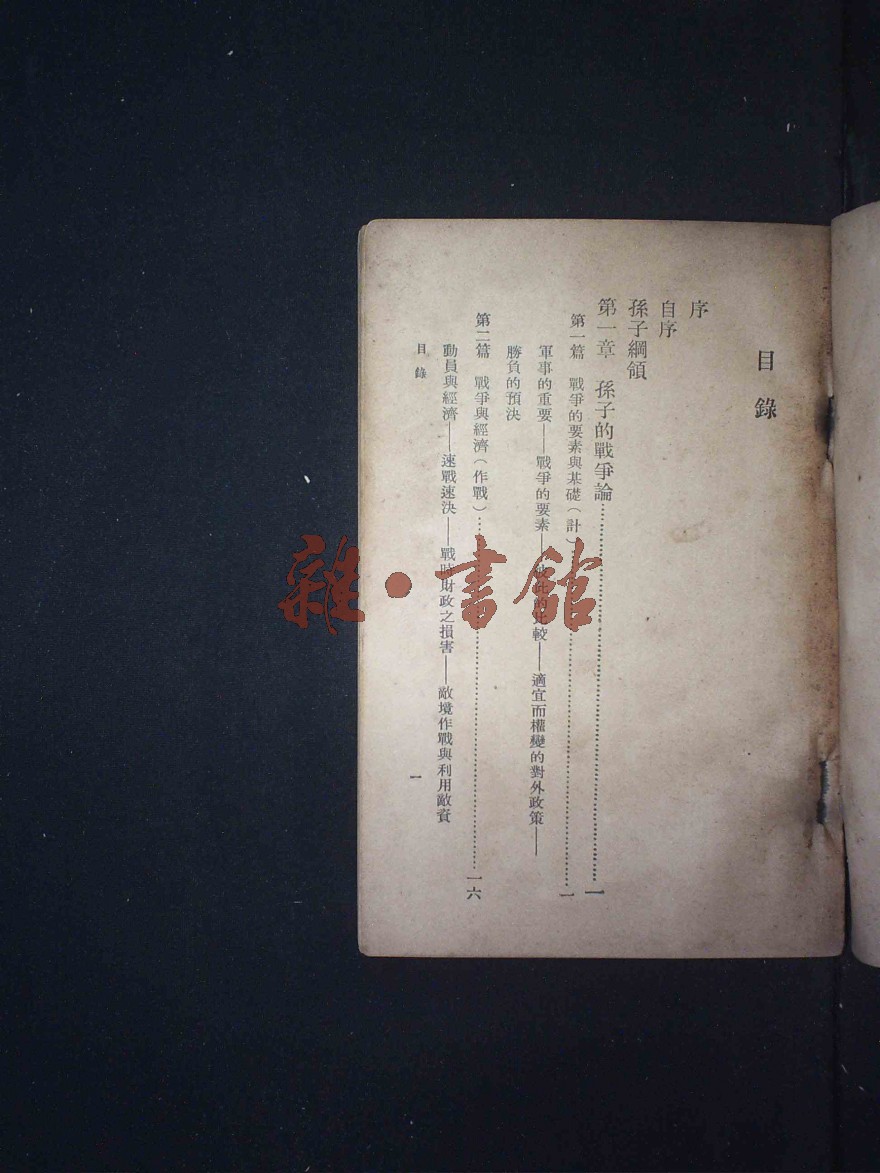 目錄
序
自序
孫子綱領
第一章 孫子的戰爭論……一
第一篇 戰爭的要素與基礎(計)……一
軍事的重要——戰爭的要素——彼此的比較——適宜而權變的對外政策——
勝負的預決
第二篇 戰爭與經濟(作戰)……一六
動員與經濟——速戰速決——戰時財政之損害——敵境作戰與利用敵資
目錄
一
雜·書館